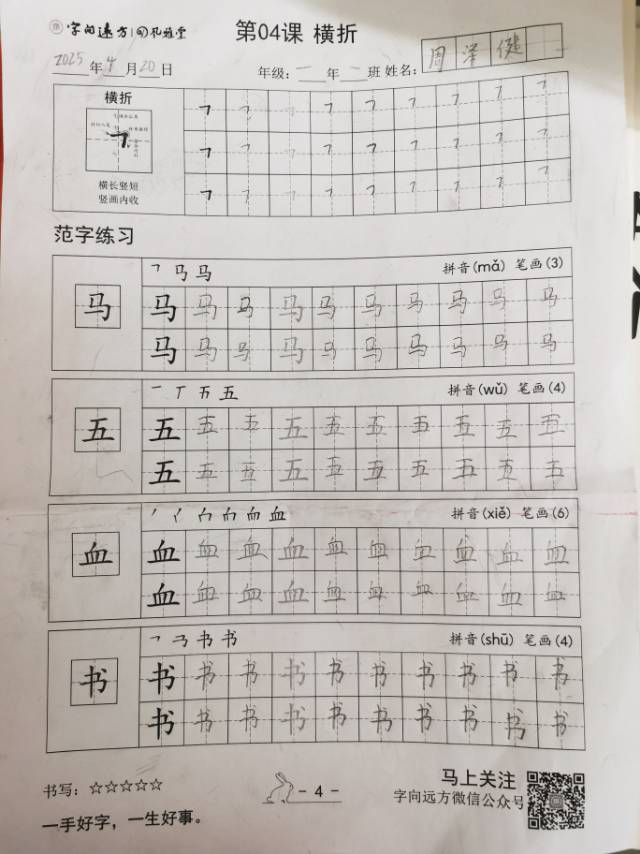 字向远方 孔雅堂
第04课 横折
2025年4月20日
年级：一年一班 姓名：周泽健
横折
横长竖短
竖画内收
范字练习
马
拼音(mǎ) 笔画(3)
马马马马马马马马马马
马马马马马马马马马马
五
拼音(wǔ) 笔画(4)
五五五五五五五五五五
五五五五五五五五五五
血
拼音(xiě) 笔画(6)
血血血血血血血血血血
血血血血血血血血血血
书
拼音(shū) 笔画(4)
书书书书书书书书书书
书书书书书书书书书书
书写：☆☆☆☆☆
一手好字，一生好事。
- 4 -
马上关注
字向远方微信公众号